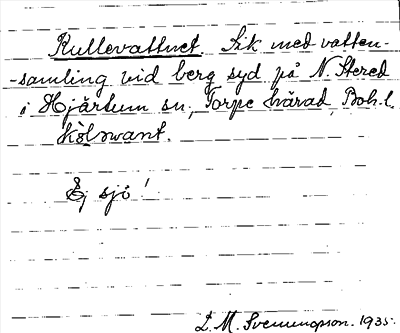 Kullevattnet. Sik med vatten-
-samling vid berg syd på N. Stered
i Hjärtum sn, Torpe härad, Boh.l.
Kölsvant.
Ej sjö!
D. M. Svenungsson. 1935.